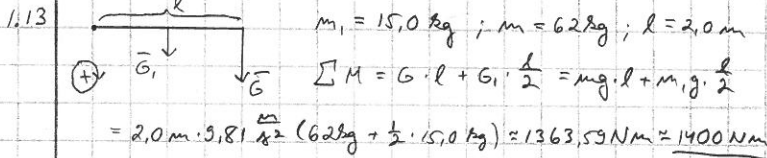 1.13
l
G̅₁
G̅
+
m₁ = 15,0 kg ; m = 62 kg ; l = 2,0 m
∑ M = G · l + G₁ · l/2 = mg · l + m₁g · l/2
= 2,0 m · 9,81 m/s² (62 kg + 1/2 · 15,0 kg) ≈ 1363,59 Nm ≈ 1400 Nm